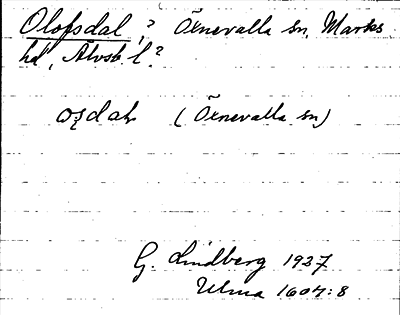 Olofsdal,? Öxnevalla sn, Marks
hd, Älvsb. l.?
(Öxnevalla sn)
G. Lindberg 1927
Ulma 1604:8